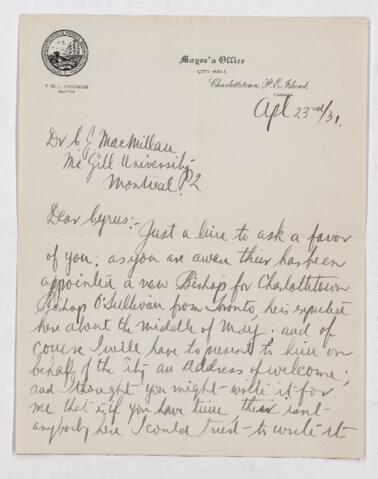 Mayor's Office
CITY HALL
Charlottetown, P. E. Island,
CANADA
T. W. L. PROWSE
MAYOR
Apl 23rd/31.
Dr C. J. MacMillan
McGill University
Montreal P2
Dear Cyrus:- Just a line to ask a favor
of you; as you are awar their has been
appointed a new Bishop for Charlottetown
Bishop O'Sullivan from Toronto, he is expected
here about the middle of May, and of
course I will have to present to him on
behalf of the City an Address of welcome;
and I thought you might write it for
me that is if you have time, their isnt
anybody here I could trust to write it